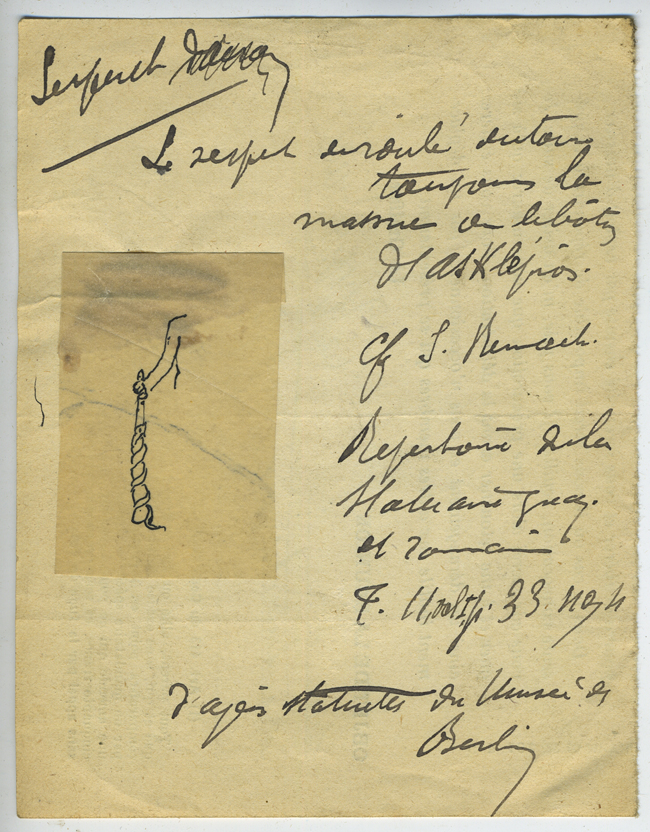 Serpent
Le serpent enroulé autour
toujours la
massue ou le bâton
d'Asklépios.
Cf S. Reinach.
Répertoire de la
Statuaire grecq.
et romaine
T. II, vol I p. 33.
d'après statuettes du Musée de
Berlin